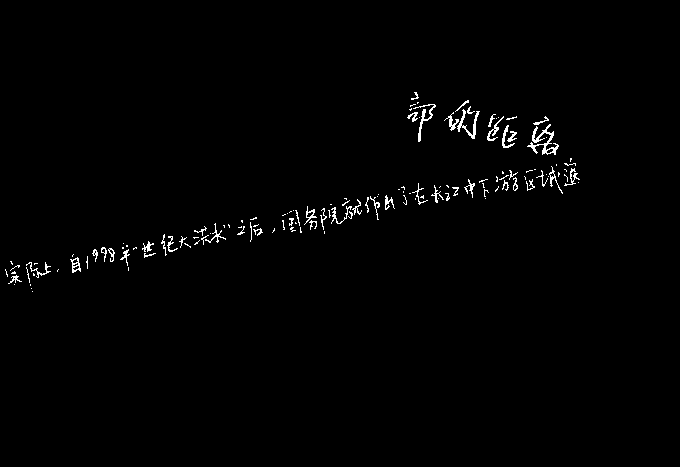 部的距离
实际上,自1998年“世纪大洪水”之后,国务院就作出了在长江中下游区域逐